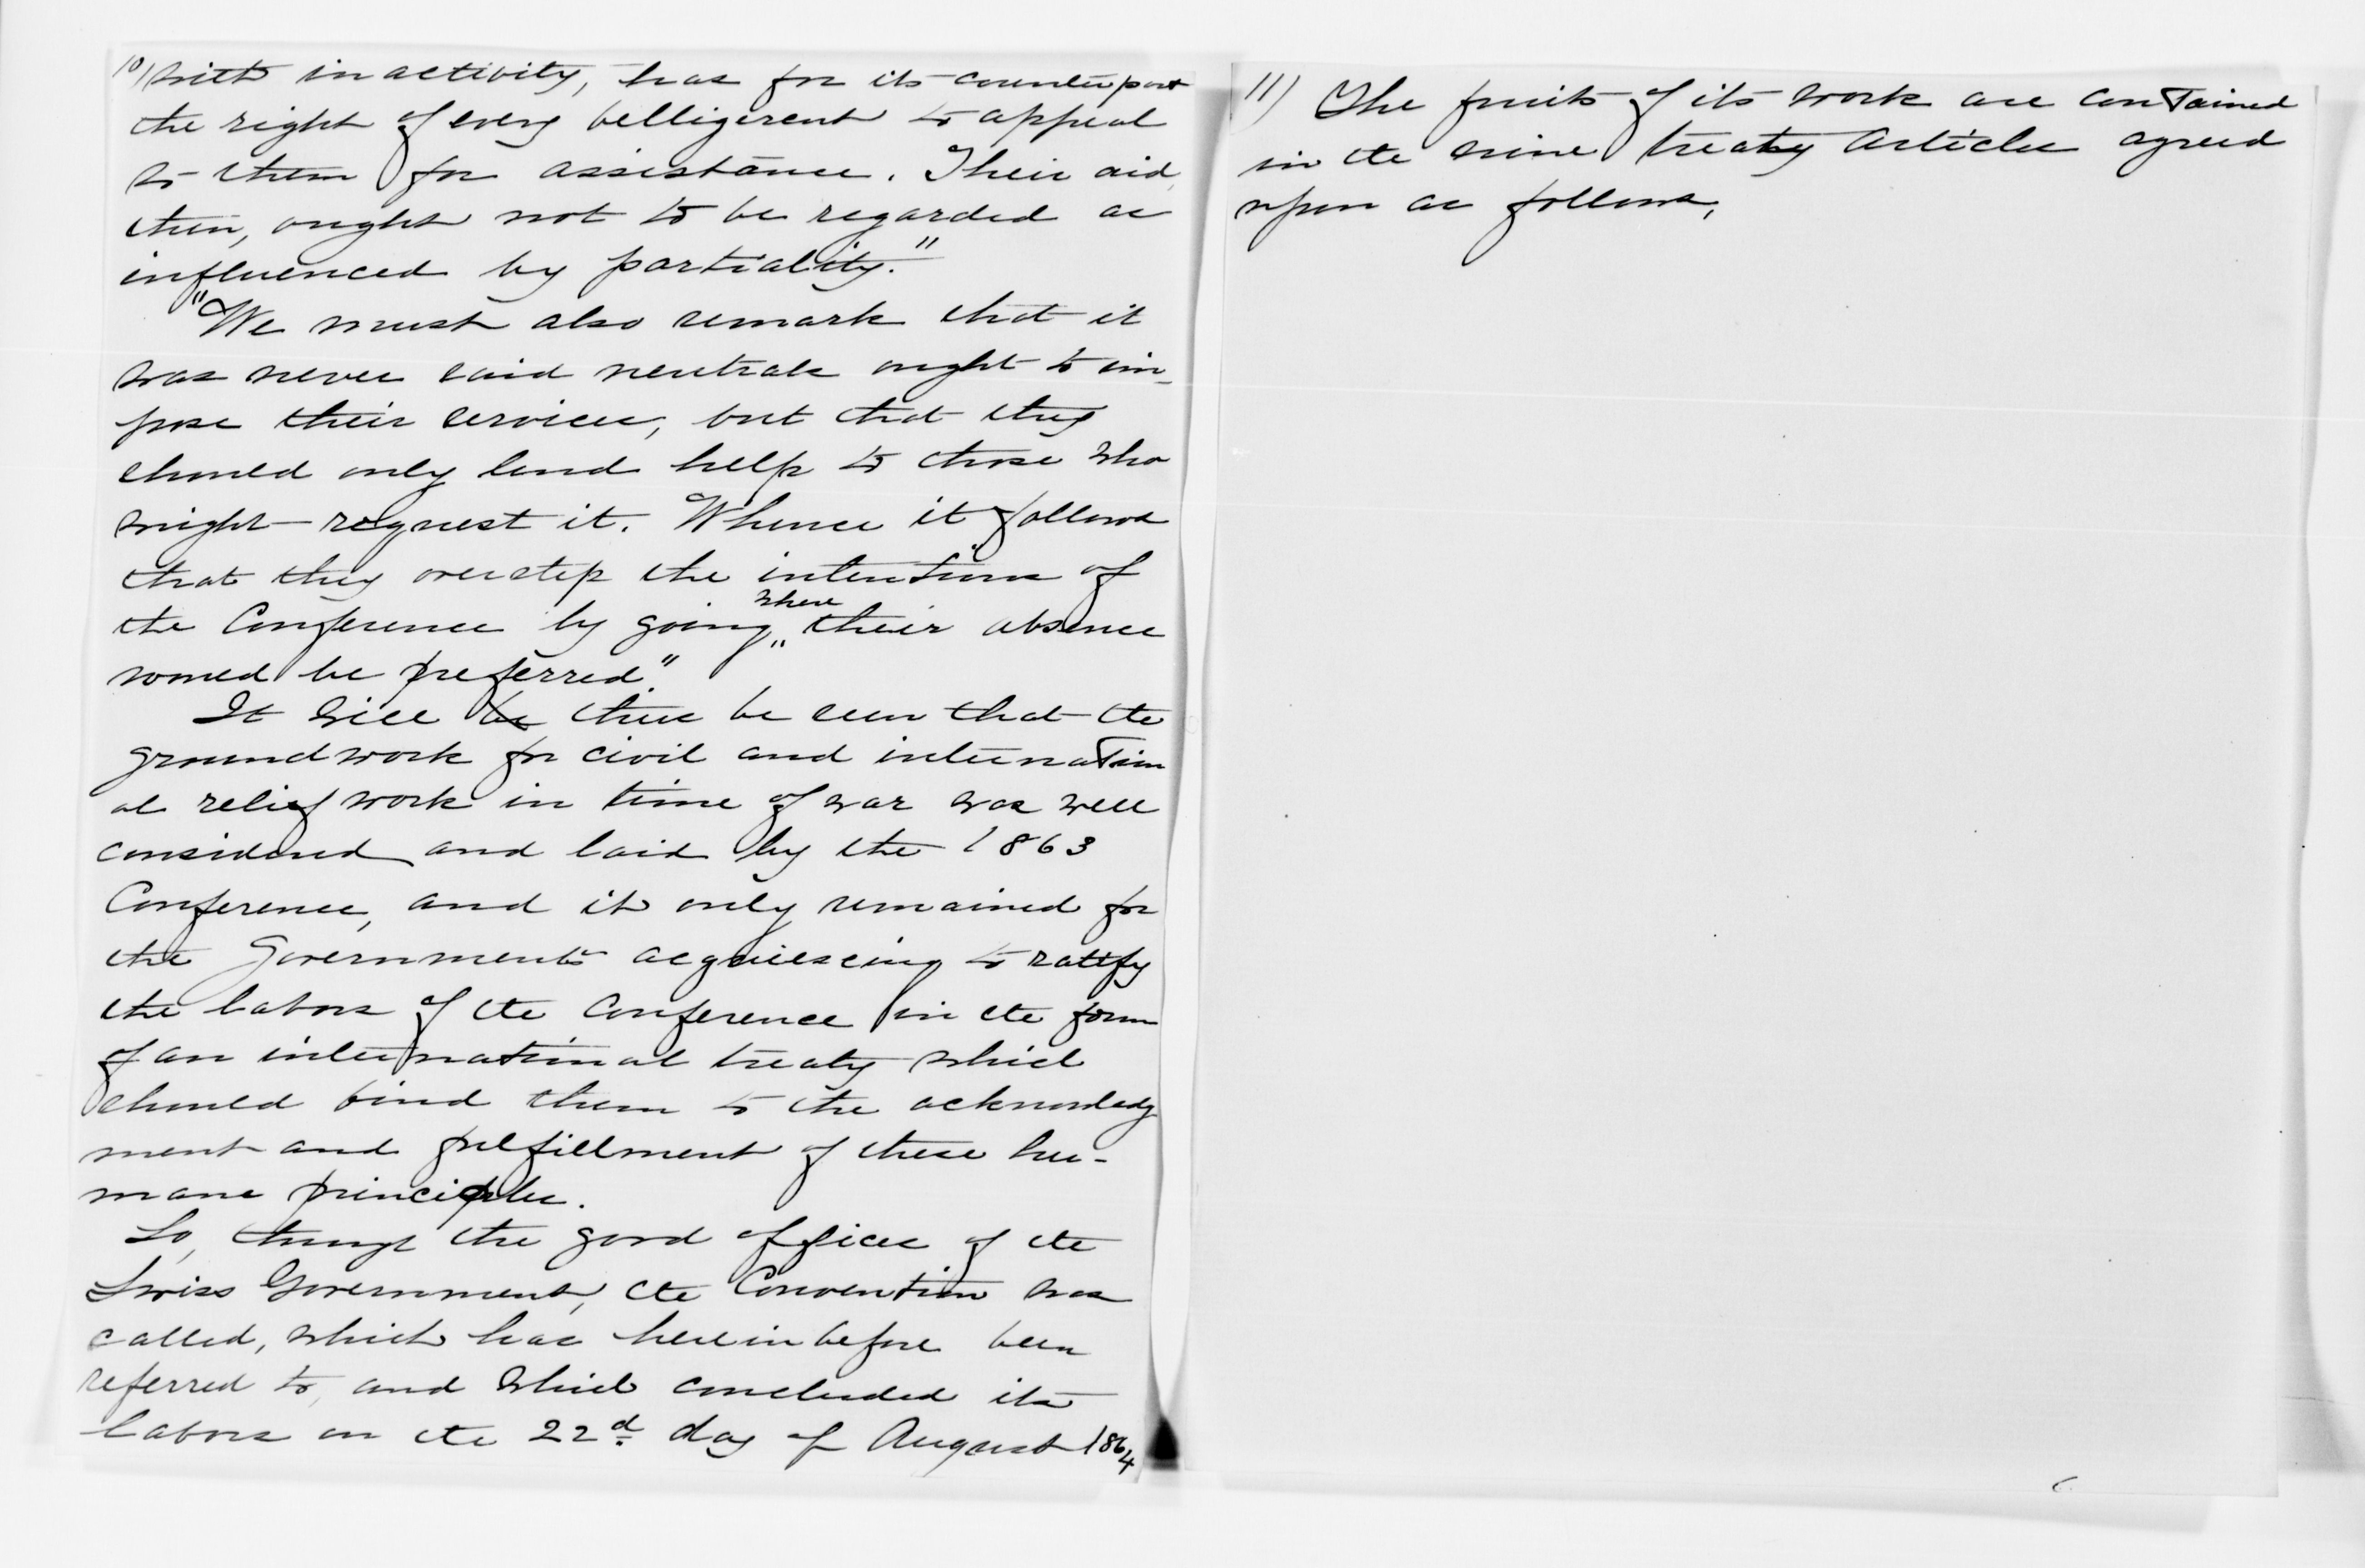 10) with inactivity, has for its counterpart
the right of every belligerent to appeal
to them for assistance. Their aid,
then, ought not to be regarded as
influenced by partiality."
"We must also remark that it
was never said neutrals ought to im-
pose their services, but that they
should only lend help to those who
might request it. Whence it follows
that they overstep the intentions of
where
the Conference by going their absence
would be preferred."
It will be thus be seen that the
groundwork for civil and internation
al relief work in time of war was well
considered and laid by the 1863
Conference, and it only remained for
the Governments acquiescing to ratify
the labors of the Conference in the form
of an international treaty which
should bind them to the acknowledg
ment and fulfillment of these hu-
mane principles.
So, through the good offices of the
Swiss Government, the Convention was
called, which has hereinbefore been
referred to, and which concluded its
labors on the 22d day of August 1864
11) The fruits of its work are contained
in the nine treaty articles agreed
upon as follows,